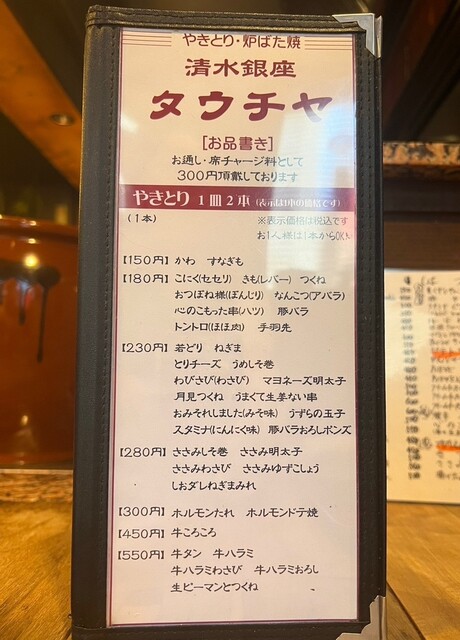 やきとり・炉ばた焼
清水銀座
タウチヤ
[お品書き]
お通し・席チャージ料として
300円頂戴しております
やきとり 1皿2本 (表示は1本の価格です)
(1本) ※表示価格は税込です
お1人様は1本からOK
【150円】かわ すなぎも
【180円】こにく(セセリ) きも(レバー) つくね
おつぼね様(ぼんじり) なんこつ(アバラ)
心のこもった串(ハツ) 豚バラ
トントロ(ほほ肉) 手羽先
【230円】若どり ねぎま
とりチーズ うめしそ巻
わびさび(わさび) マヨネーズ明太子
月見つくね うまくて生姜ない串
おみそれしました(みそ味) うずらの玉子
スタミナ(にんにく味) 豚バラおろしポンズ
【280円】ささみしそ巻 ささみ明太子
ささみわさび ささみゆずこしょう
しおダレねぎまみれ
【300円】ホルモンたれ ホルモンドテ焼
【450円】牛ころころ
【550円】牛タン 牛ハラミ
牛ハラミわさび 牛ハラミおろし
生ピーマンとつくね